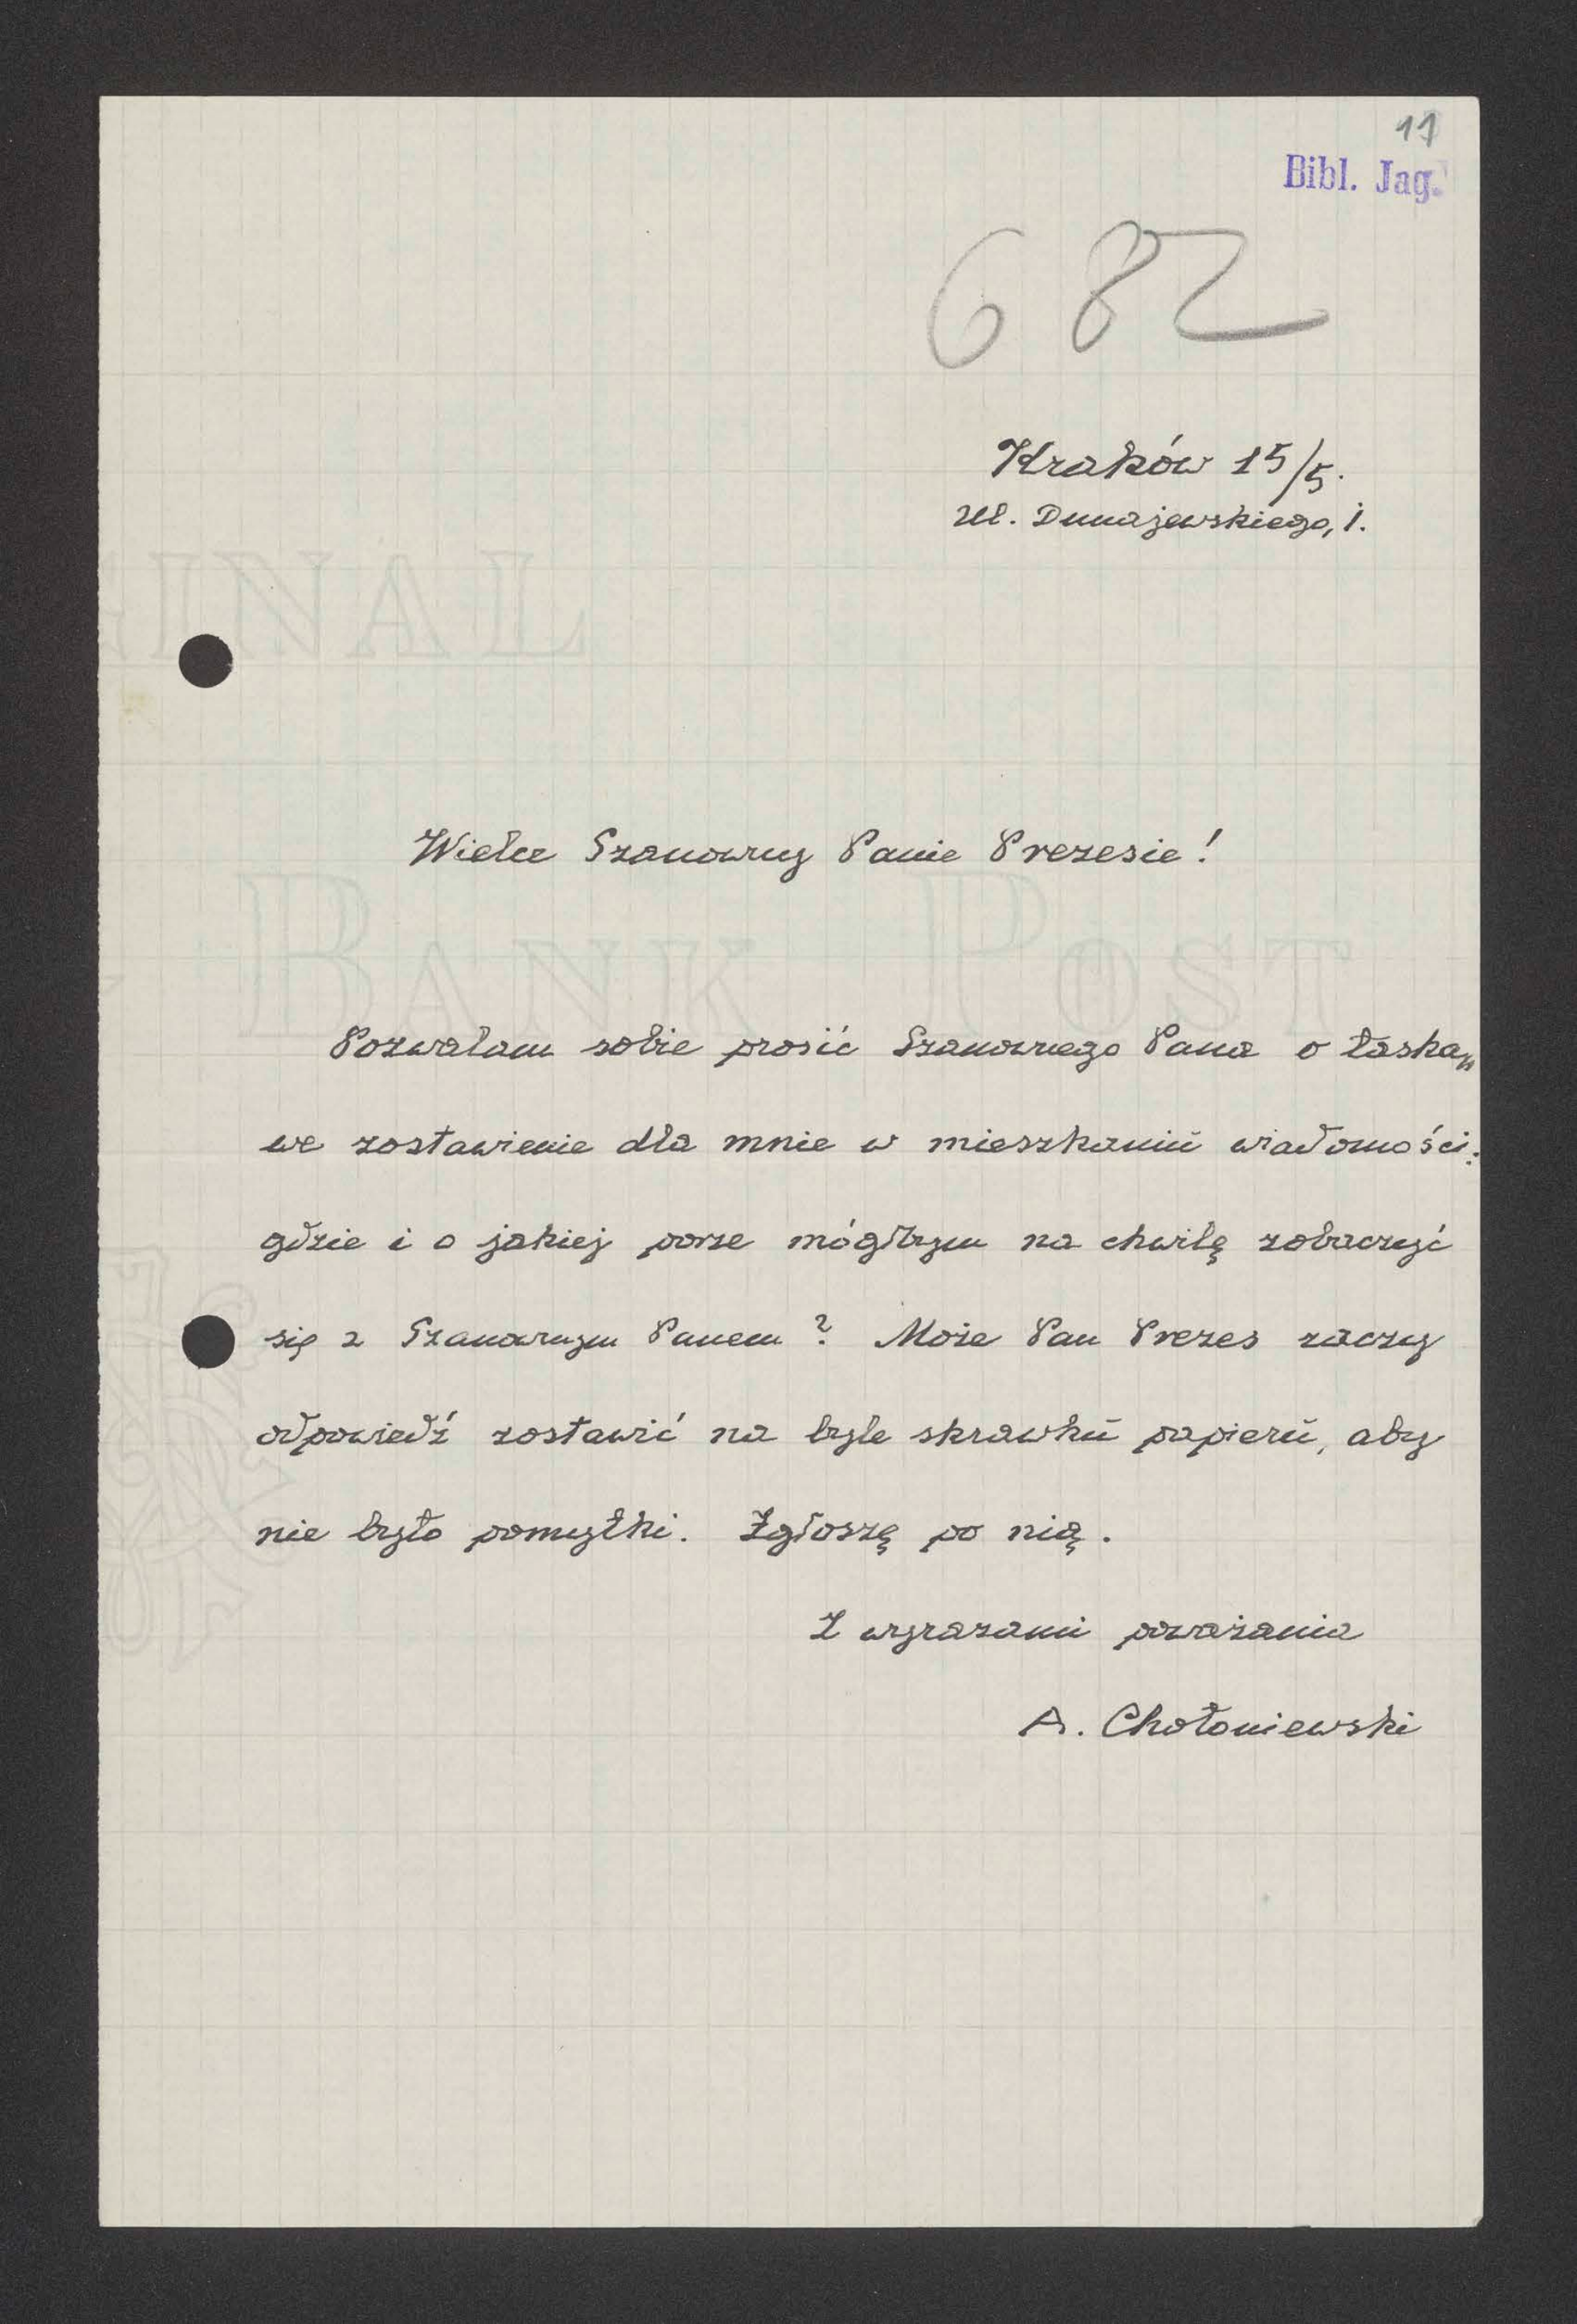 11
Bibl. Jag.
682
Kraków 15/5.
ul. Dunajewskiego, 1.
GINAL
Wielce Szanowny Panie Prezesie!
BANK POST
Pozwalam sobie prosić Szanownego Pana o łaska„
we zostawienie dla mnie w mieszkaniu wiadomości:
gdzie i o jakiej porze mógłbym na chwilę zobaczyć
się z Szanownym Panem? Może Pan Prezes raczy
odpowiedź zostawić na byle skrawku papieru, aby
nie było pomyłki. Zgłoszę po nią.
Z wyrazami poważania
A. Chołoniewski